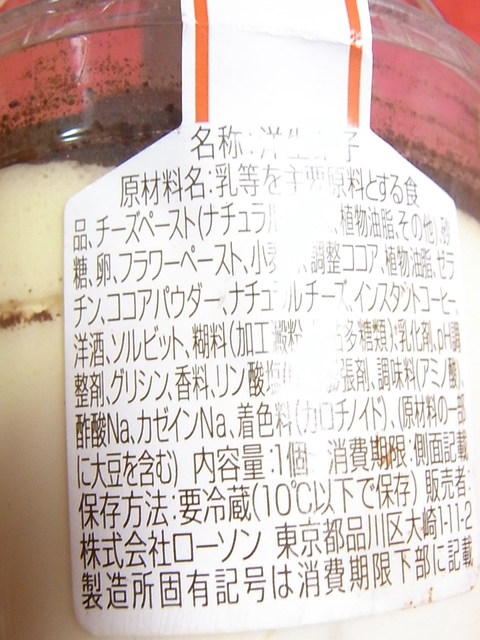 名称:洋生 子
原材料名:乳等を主要原料とする食
品、チーズペースト(ナチュラル 、植物油脂、その他)、砂
糖、卵、フラワーペースト、小麦 、調整ココア、植物油脂、ゼラ
チン、ココアパウダー、ナチュラルチーズ、インスタントコーヒー、
洋酒、ソルビット、糊料(加工澱粉、 多糖類)、乳化剤、pH調
整剤、グリシン、香料、リン酸塩 膨張剤、調味料(アミノ酸)、
酢酸Na、カゼインNa、着色料(カロチノイド)、(原材料の一部
に大豆を含む) 内容量:1個 消費期限:側面記載
保存方法:要冷蔵(10℃以下で保存) 販売者:
株式会社ローソン 東京都品川区大崎1-11-2
製造所固有記号は消費期限下部に記載